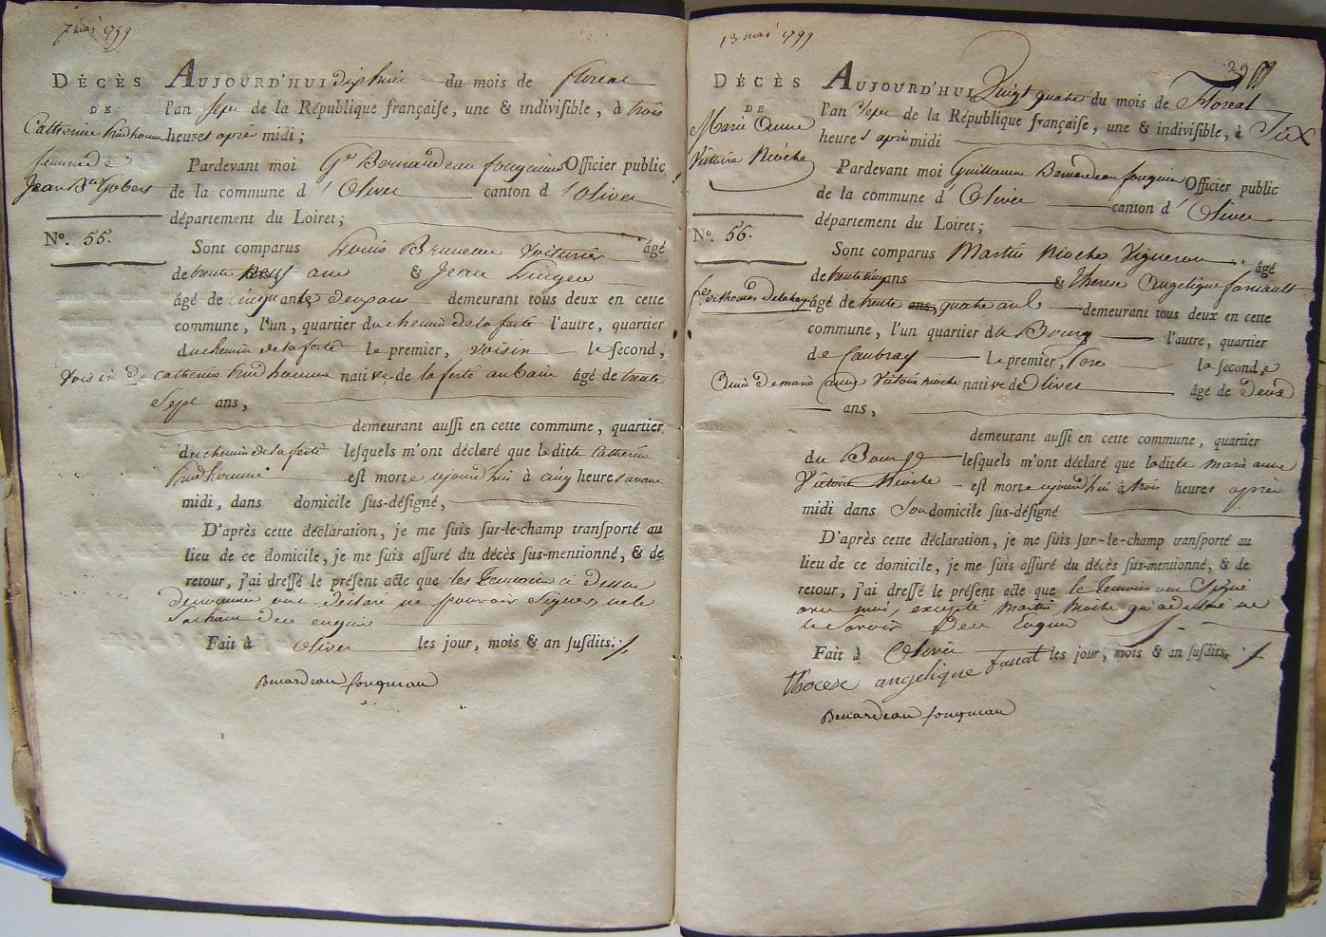 7 mai 1799
DÉCÈS
DE
Catherine Prudhomme
femme de
Jean Bte Gobert
N°. 55.
AUJOURD'HUI dix huit du mois de floreal
l'an sept de la République françaiſe, une & indiviſible, à trois
heures après midi;
Pardevant moi Gme Benardeau fouqueau Officier public
de la commune d'Olivet canton d'Olivet
département du Loiret;
Sont comparus Louis Bruneau Voiturier âgé
de trente neuf ans & Jean
âgé de cinquante deux ans demeurant tous deux en cette
commune, l'un, quartier du chemin de la ferté l'autre, quartier
du chemin de la ferté le premier, voisin le ſecond,
Voisin de catherine Prudhomme native de la ferté âgé de trente
Sept ans,
demeurant auſſi en cette commune, quartier
du chemin de la ferté leſquels m'ont déclaré que ladite Catherine
Prudhomme est morte aujourd'hui à cinq heures avant
midi, dans domicile ſus-déſigné,
D'après cette déclaration, je me ſuis ſur-le-champ tranſporté au
lieu de ce domicile, je me ſuis aſſuré du décès ſus-mentionné, & de
retour, j'ai dreſſé le préſent acte que les Temoins a dessus
denommés ont déclaré ne pouvoir Signer ne le
Sachant de ce enquis
Fait à Olivet les jour, mois & an ſuſdits.
Benardeau fouqueau
13 mai 1799
39
DÉCÈS
DE
Marie Anne
Victoire Rioche
N°. 56.
AUJOURD'HUI Vingt quatre du mois de Floreal
l'an Sept de la République françaiſe, une & indiviſible, à Six
heures après midi
Pardevant moi Guillaume Benardeau fouqueau Officier public
de la commune d'Olivet canton d'Olivet
département du Loiret;
Sont comparus Martin Rioche Vigneron âgé
de trente cinq ans & Therese Angelique farnault
âgé de trente ans, quatre ans demeurant tous deux en cette
commune, l'un quartier du Bourg l'autre, quartier
de Caubray le premier, Pere le ſecond,
Amie de marie anne Victoire Rioche native de Olivet âgé de deux
ans,
demeurant auſſi en cette commune, quartier
du Bourg leſquels m'ont déclaré que ladite marie anne
Victoire Rioche est morte aujourd'hui à trois heures après
midi dans Son domicile ſus-déſigné
D'après cette déclaration, je me ſuis ſur-le-champ tranſporté au
lieu de ce domicile, je me ſuis aſſuré du décès ſus-mentionné, & de
retour, j'ai dreſſé le préſent acte que le Temoin ont Signé
avec moi, excepté Martin Rioche qui a declaré ne
le Savoir De ce Enquis
Fait à Olivet les jour, mois & an ſuſdits.
therese angelique
Benardeau fouqueau